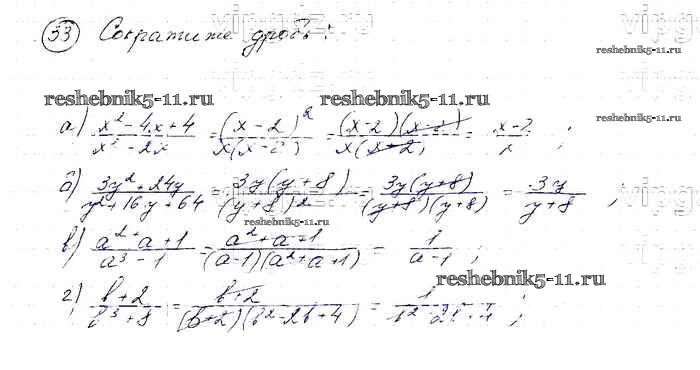 53 Сократите дробь:
reshebnik5-11.ru
reshebnik5-11.ru reshebnik5-11.ru
reshebnik5-11.ru
а) (x² - 4x + 4)/(x² - 2x) = (x - 2)²/(x(x - 2)) = (x - 2)(x - 2)/(x(x - 2)) = (x - 2)/x ;
б) (3y² + 24y)/(y² + 16y + 64) = 3y(y + 8)/(y + 8)² = 3y(y + 8)/((y + 8)(y + 8)) = 3y/(y + 8) ,
reshebnik5-11.ru
в) (a² + a + 1)/(a³ - 1) = (a² + a + 1)/((a - 1)(a² + a + 1)) = 1/(a - 1) ;
reshebnik5-11.ru
г) (b + 2)/(b³ + 8) = (b + 2)/((b + 2)(b² - 2b + 4)) = 1/(b² - 2b + 4) ;